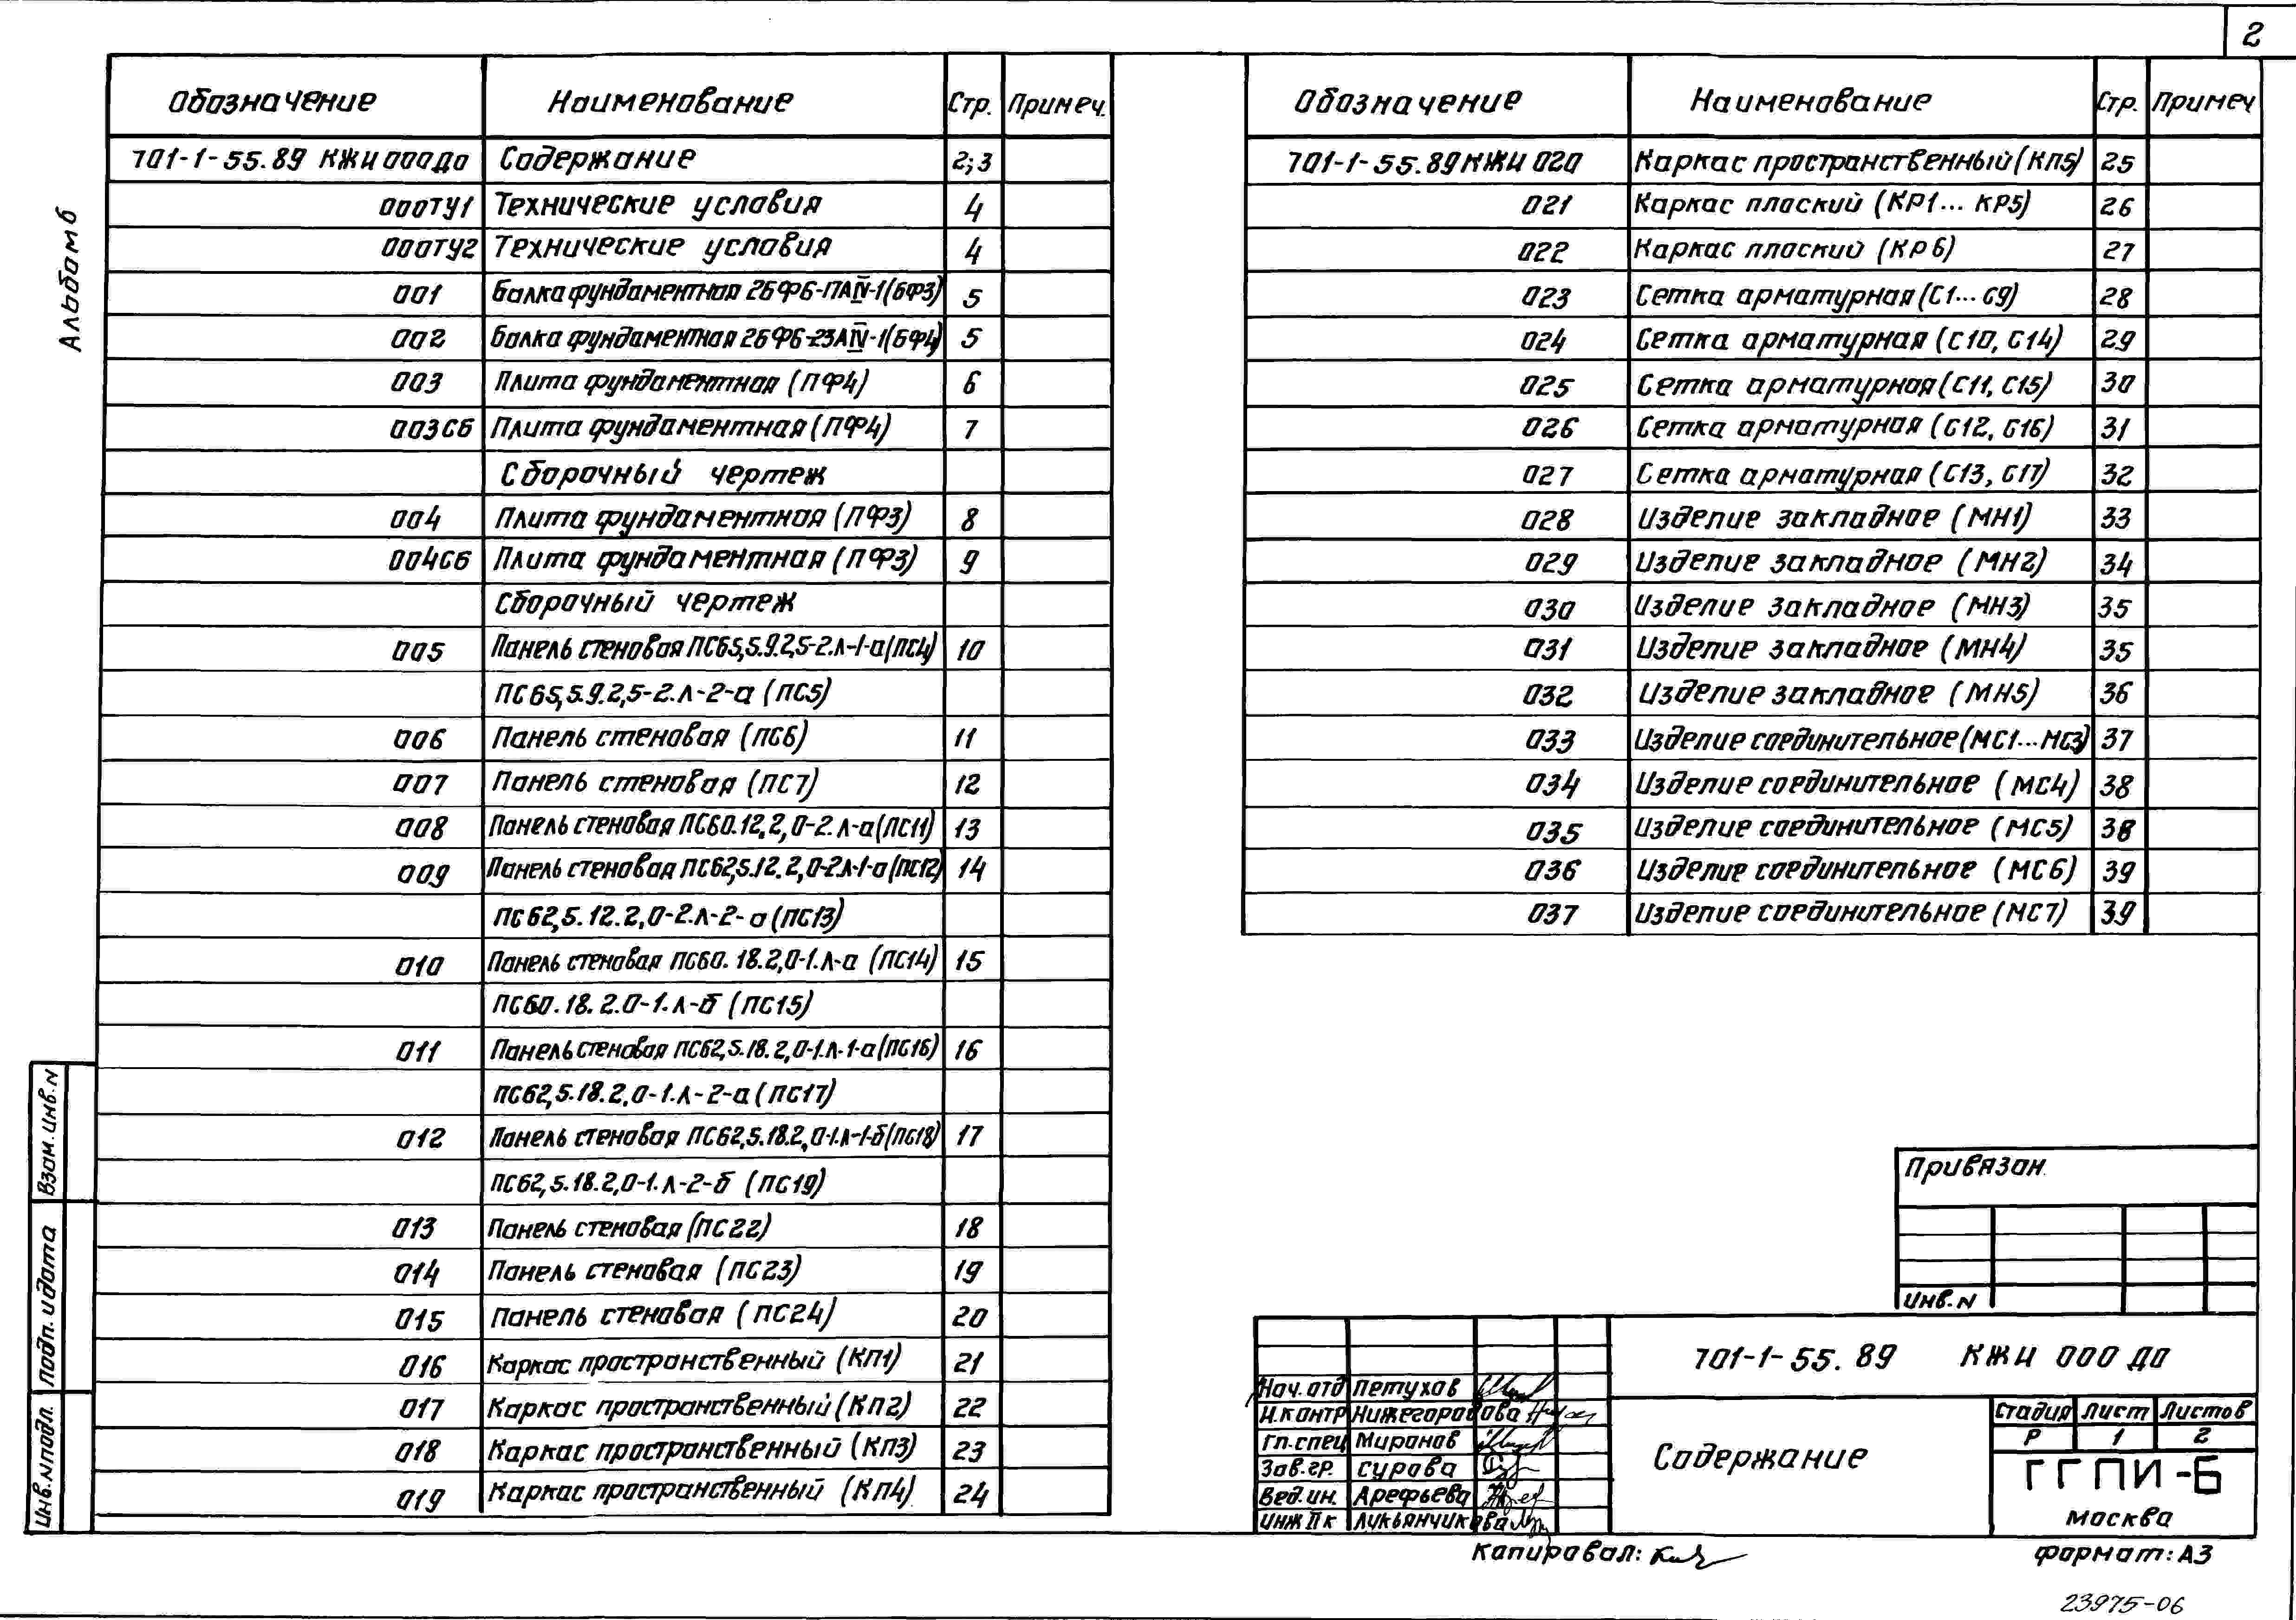 2
Альбом 6
Обозначение Наименование Стр. Примеч.
701-1-55.89 КЖИ 000До Содержание 2;3
000ТУ1 Технические условия 4
000ТУ2 Технические условия 4
001 Балка фундаментная 2БФ6-ПАIV-1(БФ3) 5
002 Балка фундаментная 2БФ6-23АIV-1(БФ4) 5
003 Плита фундаментная (ПФ4) 6
003СБ Плита фундаментная (ПФ4) 7
Сборочный чертеж
004 Плита фундаментная (ПФ3) 8
004СБ Плита фундаментная (ПФ3) 9
Сборочный чертеж
005 Панель стеновая ПС65,5.9.2,5-2.л-1-а(ПС4) 10
ПС65,5.9.2,5-2.л-2-а (ПС5)
006 Панель стеновая (ПС6) 11
007 Панель стеновая (ПС7) 12
008 Панель стеновая ПС60.12.2,0-2.л-а(ПС11) 13
009 Панель стеновая ПС62,5.12.2,0-2л-1-а(ПС12) 14
ПС62,5.12.2,0-2.л-2-а(ПС13)
010 Панель стеновая ПС60.18.2,0-1.л-а (ПС14) 15
ПС60.18.2.0-1.л-б (ПС15)
011 Панель стеновая ПС62,5.18.2,0-1.л-1-а(ПС16) 16
ПС62,5.18.2,0-1.л-2-а (ПС17)
012 Панель стеновая ПС62,5.18.2,0-1.л-1-б(ПС18) 17
ПС62,5.18.2,0-1.л-2-б (ПС19)
013 Панель стеновая (ПС22) 18
014 Панель стеновая (ПС23) 19
015 Панель стеновая (ПС24) 20
016 Каркас пространственный (КП1) 21
017 Каркас пространственный (КП2) 22
018 Каркас пространственный (КП3) 23
019 Каркас пространственный (КП4) 24
Обозначение Наименование Стр. Примеч
701-1-55.89 КЖИ 020 Каркас пространственный (КП5) 25
021 Каркас плоский (КР1... КР5) 26
022 Каркас плоский (КР6) 27
023 Сетка арматурная (С1... С9) 28
024 Сетка арматурная (С10, С14) 29
025 Сетка арматурная (С11, С15) 30
026 Сетка арматурная (С12, С16) 31
027 Сетка арматурная (С13, С17) 32
028 Изделие закладное (МН1) 33
029 Изделие закладное (МН2) 34
030 Изделие закладное (МН3) 35
031 Изделие закладное (МН4) 35
032 Изделие закладное (МН5) 36
033 Изделие соединительное (МС1... МС3) 37
034 Изделие соединительное (МС4) 38
035 Изделие соединительное (МС5) 38
036 Изделие соединительное (МС6) 39
037 Изделие соединительное (МС7) 39
Взам.инв.N
Подп. и дата
Инв.N подл.
Привязан
Инв.N
701-1-55.89 КЖИ 000 До
Нач.отд Петухов
Н.контр Нижегородова
Гл.спец Миронов
Зав.гр. Сурова
Вед.ин. Арефьева
Инж IIк Лукьянчикова
Содержание
Стадия Лист Листов
Р 1 2
ГГПИ-Б
Москва
Копировал:
Формат: А3
23975-06